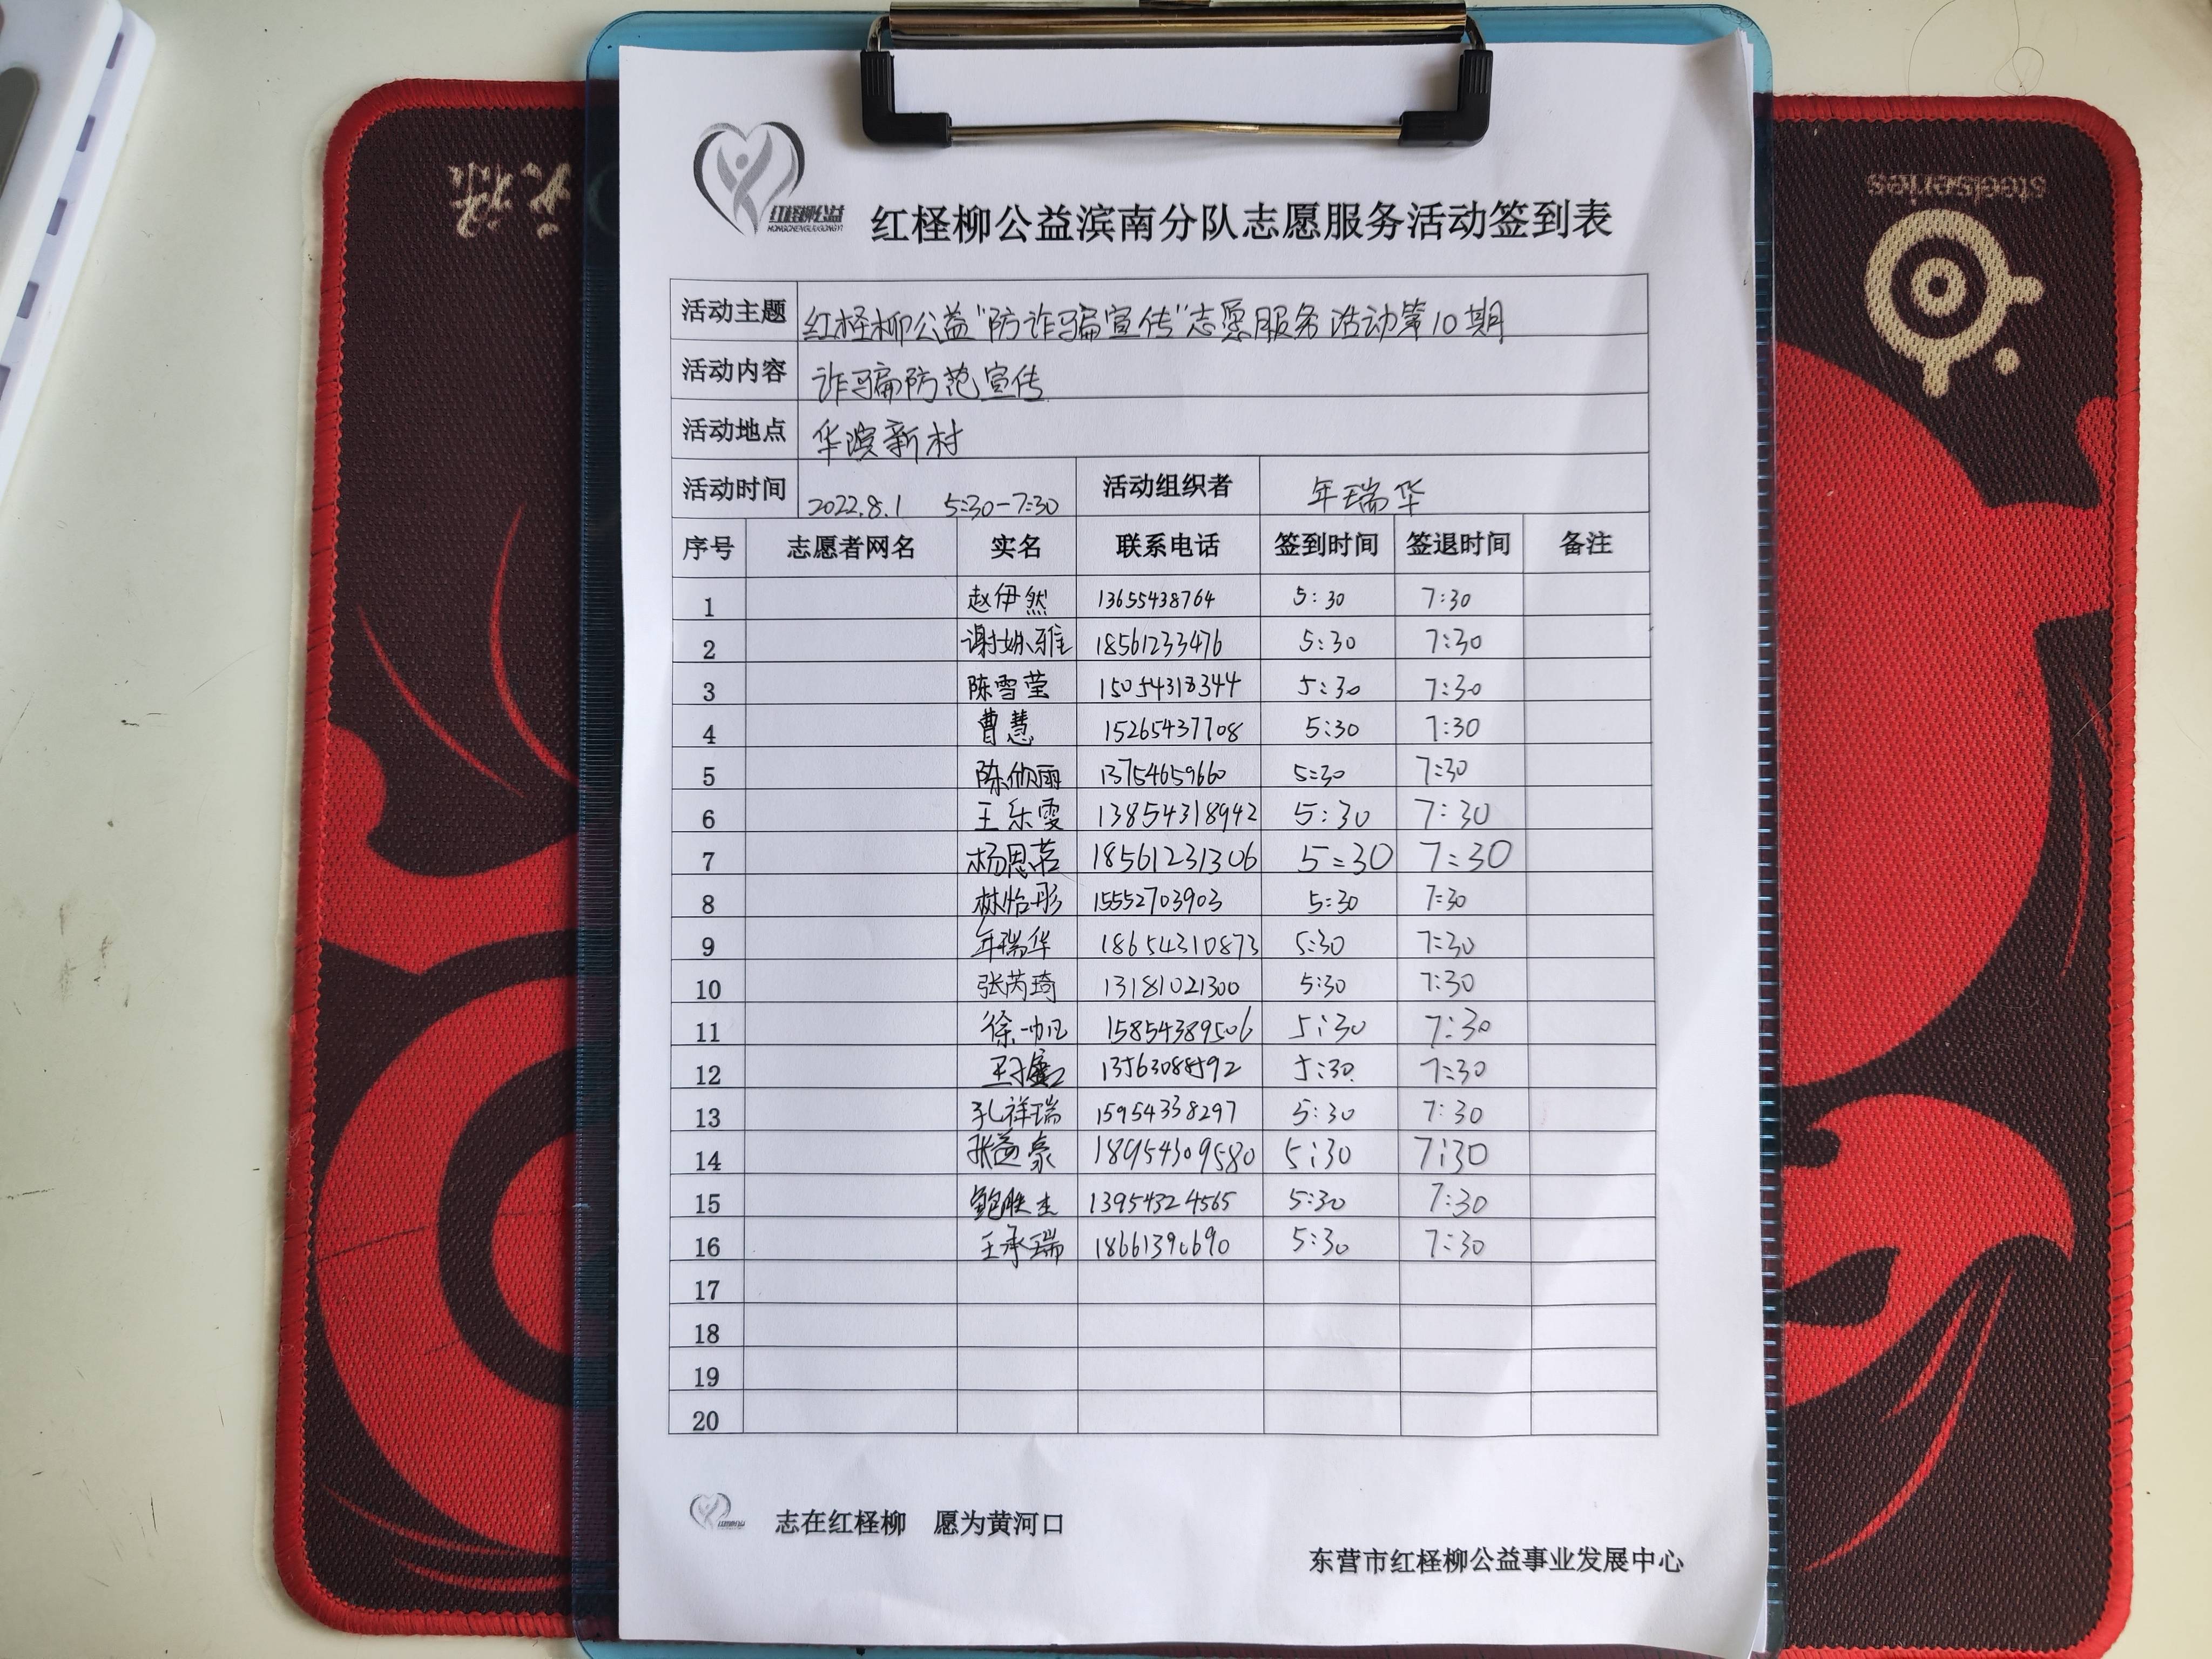 红柽柳公益
HONGCHENGLIUGONGYI
红柽柳公益滨南分队志愿服务活动签到表
活动主题 红柽柳公益"防诈骗宣传"志愿服务活动第10期
活动内容 诈骗防范宣传
活动地点 华滨新村
活动时间 2022.8.1 5:30-7:30 活动组织者 年瑞华
序号 志愿者网名 实名 联系电话 签到时间 签退时间 备注
1 赵伊然 13655438764 5:30 7:30
2 谢姝雅 18561233476 5:30 7:30
3 陈雪莹 15054318344 5:30 7:30
4 曹慧 15265437708 5:30 7:30
5 陈欣丽 13754659660 5:30 7:30
6 王乐雯 13854318942 5:30 7:30
7 杨思茗 18561231306 5:30 7:30
8 林怡彤 15552703903 5:30 7:30
9 年瑞华 18654310873 5:30 7:30
10 张芮琦 13181021300 5:30 7:30
11 徐一帆 15854389506 5:30 7:30
12 13563088592 5:30 7:30
13 孔祥瑞 15954338297 5:30 7:30
14 张益豪 18954309580 5:30 7:30
15 鲍胜杰 13954324565 5:30 7:30
16 王承瑞 18661390690 5:30 7:30
17
18
19
20
志在红柽柳 愿为黄河口
东营市红柽柳公益事业发展中心
steelseries